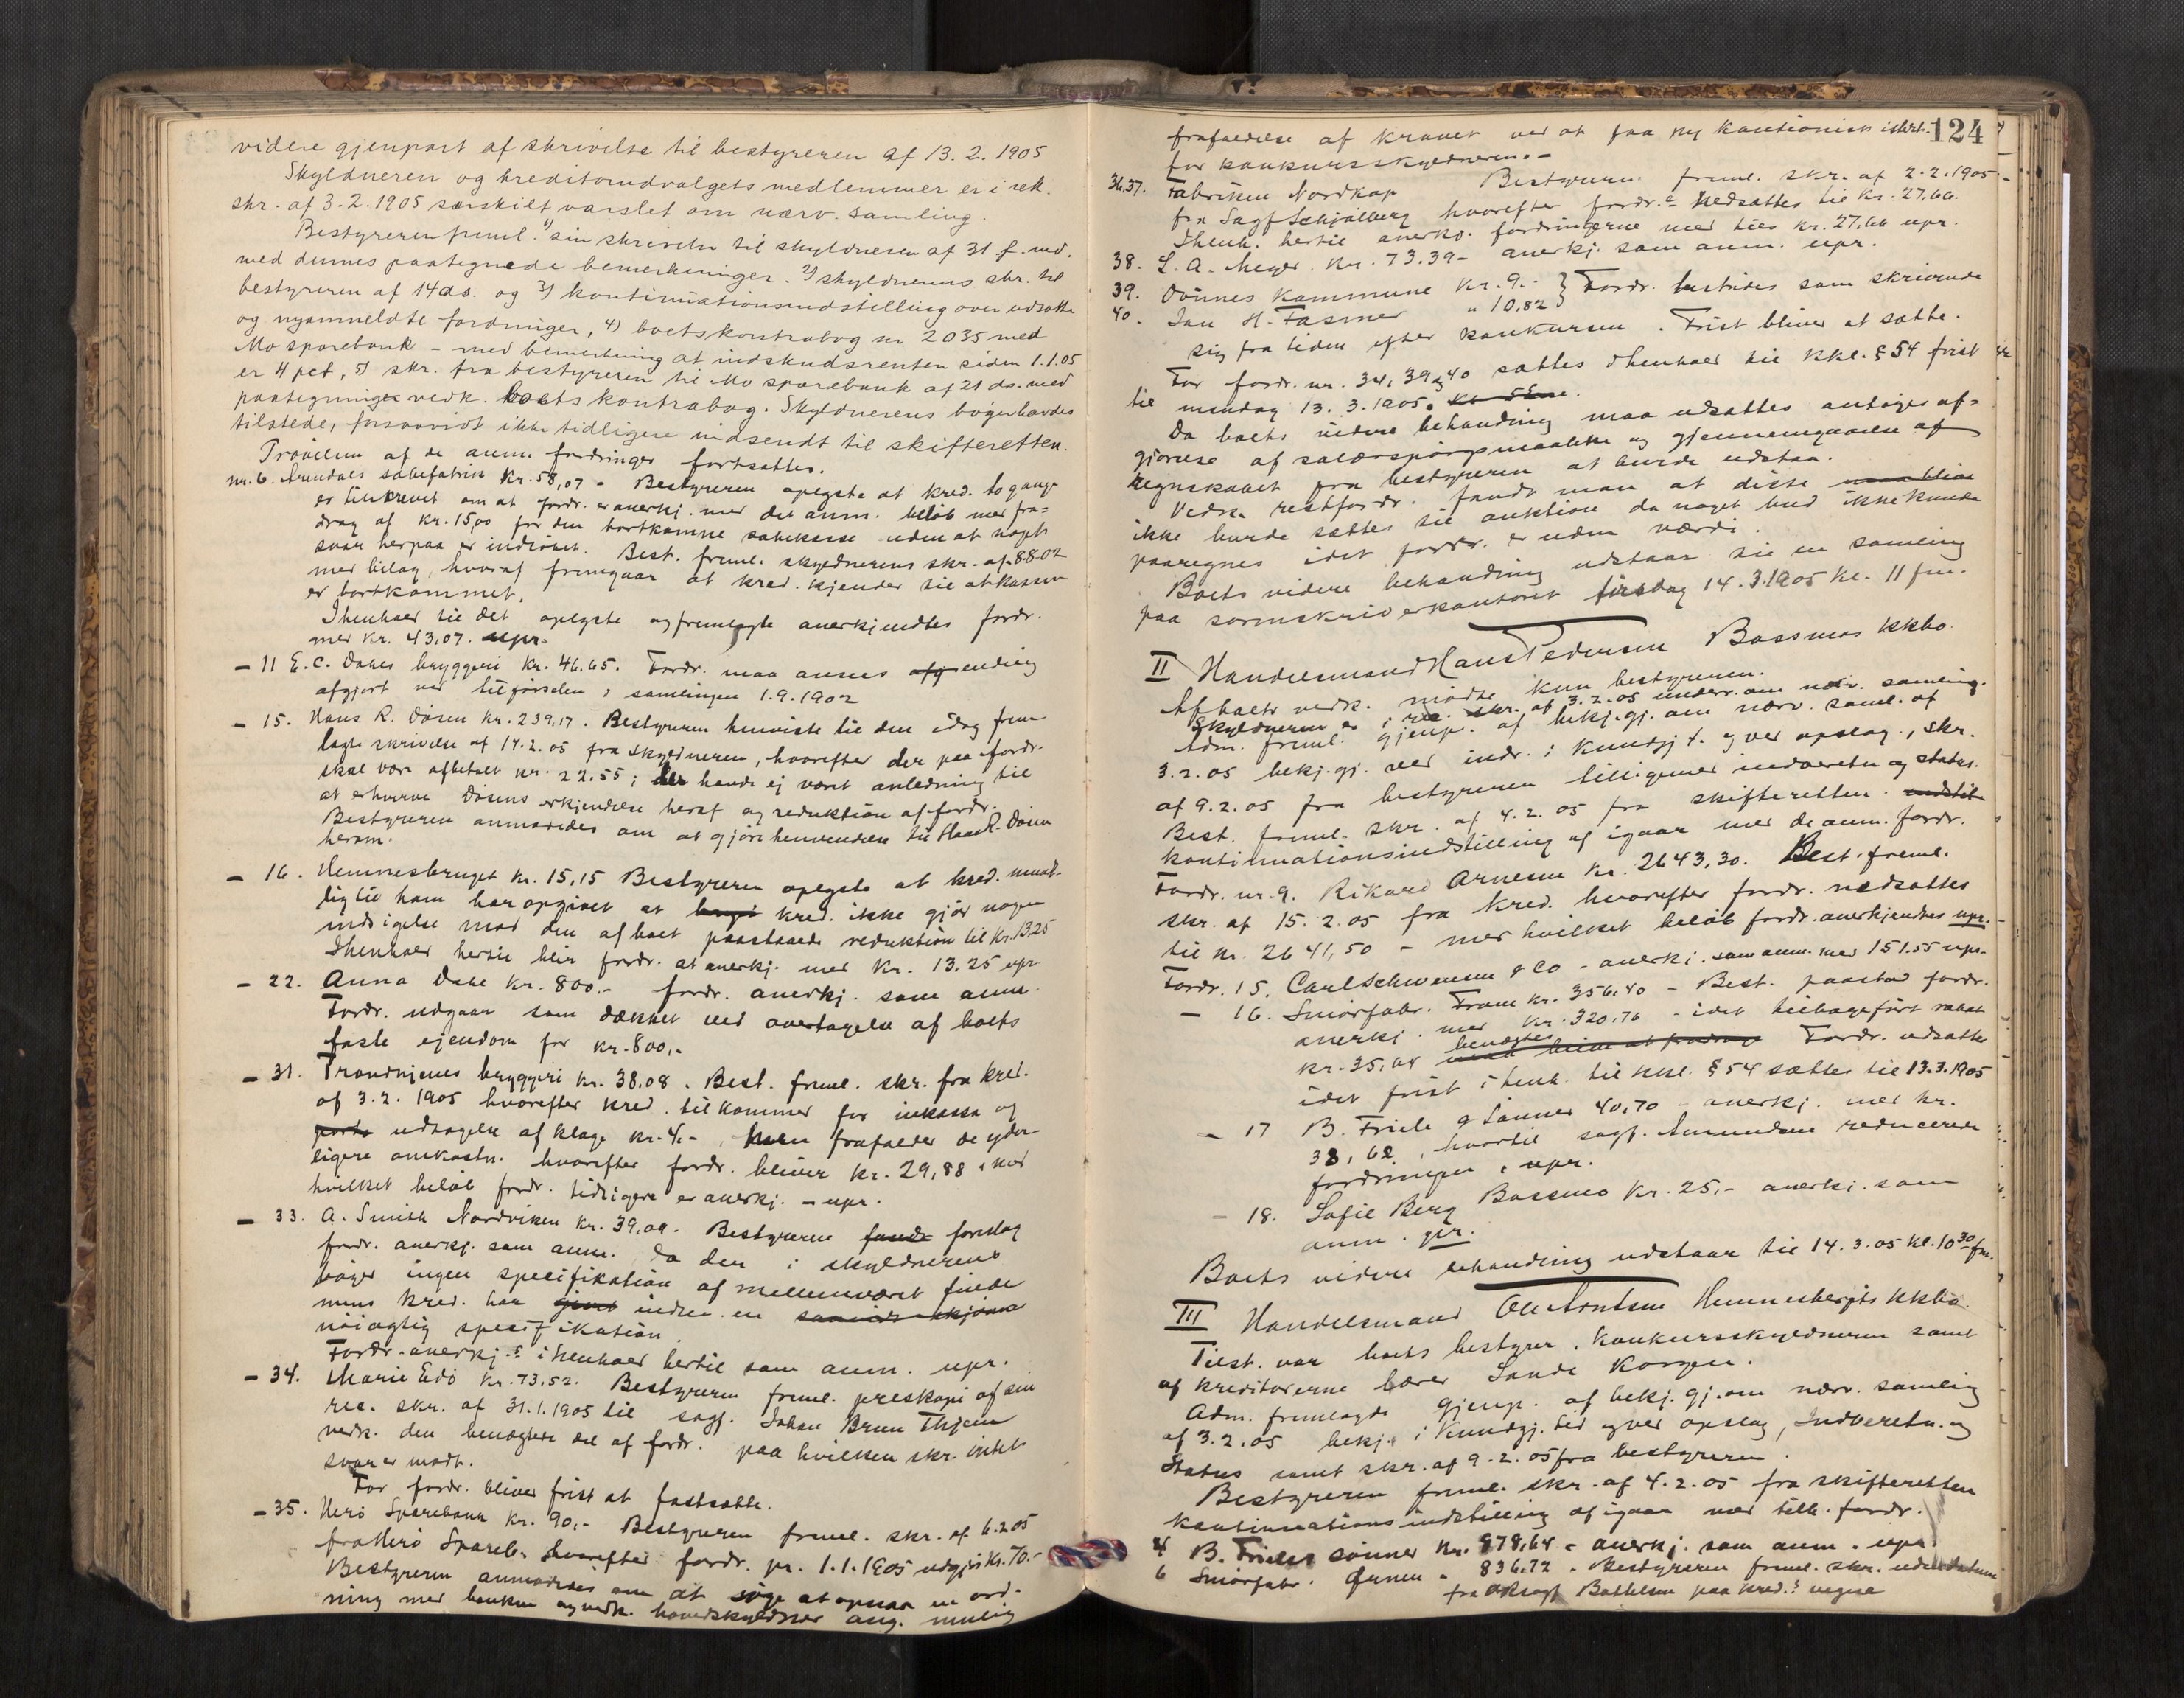 videre gjenpart af skrivelse til bestyreren af 13.2.1905
Skyldneren og kreditorudvalgets medlemmer er i rek.
skr. af 3-2.1905 særskilt varslet om nærv. samling.
Bestyreren freml. 1) sin skrivelse til skyldneren af 31 f. md.
med dennes paategnede bemerkninger. 2) skyldnerens skr. til
bestyreren af 14 ds. og 3) kontinuationsindstilling over udsatte
og nyanmeldte fordringer, 4) boets kontrabog nr 2035 med
Mo sparebank - med bemerkning at indskudsrenten siden 1.1.05
er 4 pct, 5) skr. fra bestyreren til Mo sparebank af 21 ds. med
paategninger vedk. boets kontrabog. Skyldnerens bøger havdes
tilstede, forsaavidt ikke tidligere indsendt til skifteretten.
Prøvelsen af de anm. fordringer fortsattes.
nr. 6. Arendals sæbefabrik Kr. 58,07 - Bestyreren oplyste at kred. to gange
er tilskrevet om at fordr. er anerkj. med det anm. beløb med fra-
drag af Kr. 15,00 for den bortkomne sæbekasse uden at noget
svar herpaa er indløbet. Best. freml. skyldnerens skr. af 8.8.02
med bilag, hvoraf fremgaar at kred. kjender til at kassen
er bortkommet.
I henhold til det oplyste og fremlagte anerkjendtes fordr.
med Kr. 43,07. upr.
- 11 E.C. Dahls bryggeri Kr. 46.65. Fordr. maa ansees endelig
afgjort ved tilførselen i samlingen 1.9.1902
- 15. Hans R. Døsen Kr. 239,17. Bestyreren henviste til den idag frem-
lagte skrivelse af 14.2.05 fra skyldneren, hvorefter der paa fordr.
skal være afbetalt Kr. 22.55; der havde ej været anledning til
at erhverve Døsens erkjendelse heraf og reduktion af fordr.
Bestyreren anmodedes om at gjøre henvendelse til Hans R. Døsen
herom.
- 16. Hemnesbruget Kr. 15,15 Bestyreren oplyste at kred. mundt-
lig til ham har opgivet at kred. ikke gjør nogen
indsigelse mod den af boet paastaaede reduktion til Kr. 13.25
I henhold hertil blir fordr. at anerkj. med Kr. 13.25 upr
- 22. Anna Dahl Kr. 800.- fordr. anerkj. som anm.
Fordr. udgaar som dækket ved overtagelse af boets
faste ejendom for Kr. 800,-
- 31. Trondhjems bryggeri Kr. 38.08. Best. freml. skr. fra kred.
af 3.2.1905 hvorefter kred. tilkommer for inkasso og
udtagelse af klage Kr. 4.- men frafalder de yder-
ligere omkostn. hvorefter fordr. bliver Kr. 29,88, med
hvilket beløb fordr. tidligere er anerkj. - upr.
- 33. A. Smith Nordviken Kr. 39,09. Bestyreren foreslog
fordr. anerkj. som anm. da der i skyldnerens
bøger ingen specifikation af mellemværet findes
mens kred. har indsendt en
nøiagtig specifikation.
Fordr. anerkj.s i henhold hertil som anm. upr.
- 34. Marie Edø Kr. 73,52. Bestyreren freml. preskopi af sin
rec. skr. af 31.1.1905 til sagf. Johan Bruun Thjem
vedk. den benægtede del af fordr. paa hvilken skr. intet
svar er modt.
For fordr. bliver frist at fastsætte.
- 35. Herø Sparebank Kr. 90,- Bestyreren freml. skr. af 6.2.05
fra Herø Spareb. hvorefter fordr. pr. 1.1.1905 udgjør Kr. 70.-
Bestyreren anmodedes om at søge at opnaa en ord-
ning med banken og vedk. hovedskyldner ang. mulig
124
frafaldelse af kravet ved at faa ny kautionist istdt.
for konkursskyldneren.-
36.37. Fabriken Nordkap Bestyreren freml. skr. af 2.2.1905-
fra Sagf Schjølberg hvorefter fordr.e nedsættes til Kr. 27,66.
I henh. hertil anerkj. fordringerne med tils Kr. 27,66 upr.
38. L.A. Meyer Kr. 73.39- anerkj som anm. upr.
39. Dønnes Kommune Kr. 9.- } Fordr. bestrides som skrivende
40. Jan H. Fasmer " 10,82
sig fra tiden efter konkursen. Frist bliver at sætte.
For fordr. nr. 34, 39 og 40 sættes i henhold til Kkl. § 54 frist
til mandag 13.3.1905.
Da boets videre behandling maa udsættes antages af-
gjørelse af salærspørgsmaalet og gjennemgaaelse af
regnskabet fra bestyreren at burde udstaa.
Vedk. restfordr. fandt man at disse
ikke burde sættes til auktion da noget bud ikke kunde
paaregnes idet fordr. er uden værdi.
Boets videre behandling udstaar til en samling
paa sorenskriverkontoret tirsdag 14.3.1905 kl. 11 fm.
II Handelsmand Hans Pedersen Bassmos kkbo.
Af boets vedk. mødte kun bestyreren.
Skyldneren er i rec. skr. af 3.2.05 underr. om nærv. samling.
Adm. freml. gjenp. af bekj.gj. om nærv. saml. af
3.2.05 bekj.gj. ved indr. i Kundgj t. og ved opslag, skr.
af 9.2.05 fra bestyreren tilligemed indberetn og status.
Best. freml. skr. af 4.2.05 fra skifteretten.
kontinuationsindstilling af igaar med de anm. fordr.
Fordr. nr. 9. Rikard Arnesen Kr. 2643,30. Best. freml.
skr. af 15.2.05 fra kred. hvorefter fordr. nedsættes
til Kr. 2641,50 - med hvilket beløb fordr. anerkjendtes upr.-
Fordr. 15. Carl Schwensen & Co - anerkj. som anm. med 151.55 upr.
- 16. Smørfabr. Fram Kr. 356,40 - Best. paastod fordr.
anerkj. med Kr. 320.76 - idet tilbageført rabat
Kr. 35,64 benægtes Fordr. udsættes
idet frist i henh. til kkl. § 54 sættes til 13.3.1905
- 17 B. Friele & Sønner 40,70 - anerkj. med Kr.
38,62, hvortil sagf. Amundsen reducerede
fordringen, upr.
- 18. Sofie Berg Bassmo Kr. 25,- anerkj. som
anm. upr.
Boets videre behandling udstaar til 14.3.05 kl. 10 30 fm.
III Handelsmand Ole Arntsen Hemnesbergets kkbo.
Tilst. var boets bestyrer, konkursskyldneren samt
af kreditorerne lærer Sande Korgen.
Adm. fremlagde gjenp. af bekj.gj. om nærv. samling
af 3.2.05 bekj. i Kundgj. tid og ved opslag, Indberetn. og
Status samt skr. af 9.2.05 fra bestyreren.
Bestyreren freml. skr. af 4.2.05 fra skifteretten
kontinuationsindstilling af igaar med tilh. fordr.
4 B. Frieles sønner Kr. 878,64 - anerkj. som anm. upr
6 Smørfabr. Ørnen " 836.72. Bestyreren freml. skr. uden datum
fra Oksagf Bothelsen paa kred.s vegne